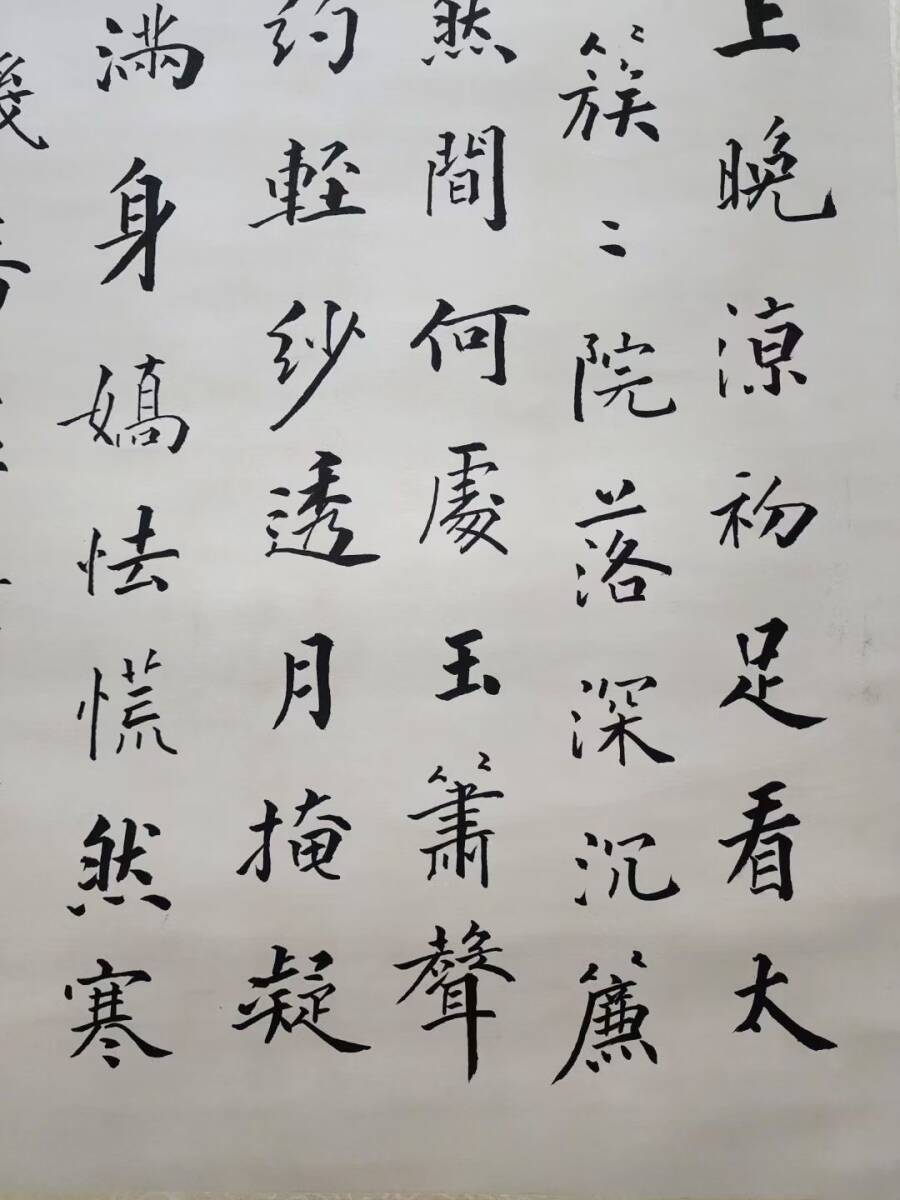 上晚涼初足看太
簇〻院落深沉簾
然間何處玉簫聲
約輕紗透月掩凝
滿身嬌怯慌然寒